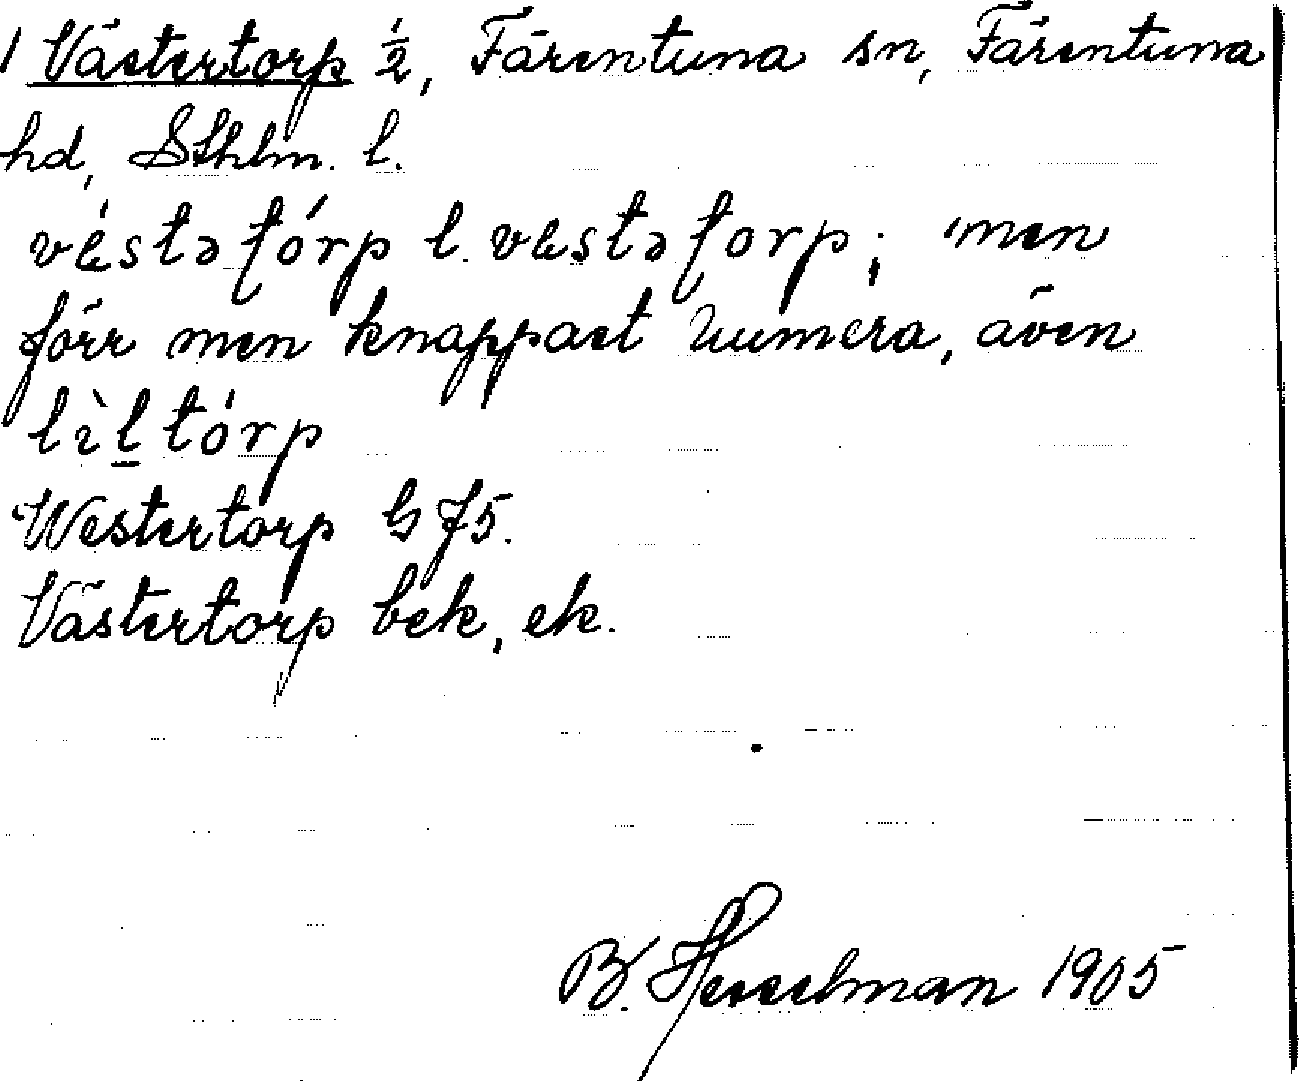 1 Västertorp ½, Färentuna sn, Färentuna
hd, Sthlm. l.
vèstə tórp l. vestə torp; men
förr men knappast numera, även
lìl tórp
Westertorp G J5.
Västertorp bek, ek.
B. Hesselman 1905